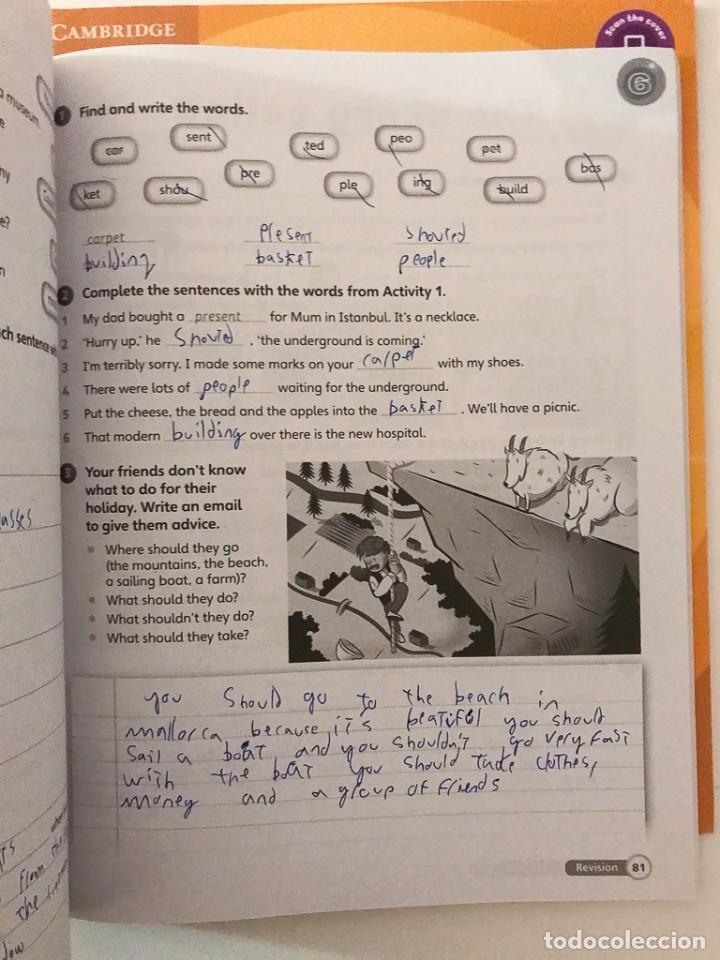 CAMBRIDGE
Scan the cover
6
a museum
1 Find and write the words.
car sent ted peo pet bas
ket shou pre ple ing build
carpet Plesent shouted
building basket people
2 Complete the sentences with the words from Activity 1.
1 My dad bought a present for Mum in Istanbul. It's a necklace.
2 'Hurry up,' he Shouted, 'the underground is coming.'
3 I'm terribly sorry. I made some marks on your carpet with my shoes.
4 There were lots of people waiting for the underground.
5 Put the cheese, the bread and the apples into the basket. We'll have a picnic.
6 That modern building over there is the new hospital.
3 Your friends don't know
what to do for their
holiday. Write an email
to give them advice.
• Where should they go
(the mountains, the beach,
a sailing boat, a farm)?
• What should they do?
• What shouldn't they do?
• What should they take?
you Should go to the beach in
mallorca because it's beatiful you should
Sail a boat and you shouldn't go very fast
with the boat you should take clothes,
money and a group of friends
Revision 81
todocoleccion